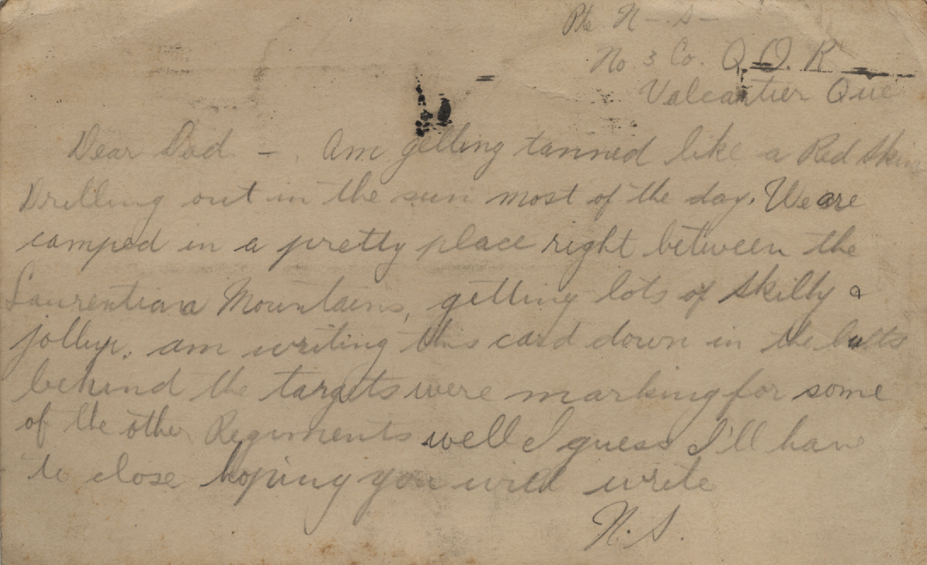 Pte N - S -
No 3 Co. Q.O.R
Valcartier Que
Dear Dad - . Am getting tanned like a Red Skin
Drilling out in the sun most of the day. We are
camped in a pretty place right between the
Laurentiana Mountains, getting lots of skilly &
jollup. am writing this card down in the butts
behind the targets were marking for some
of the other Regiments well I guess I'll have
to close hoping you will write
N.S.